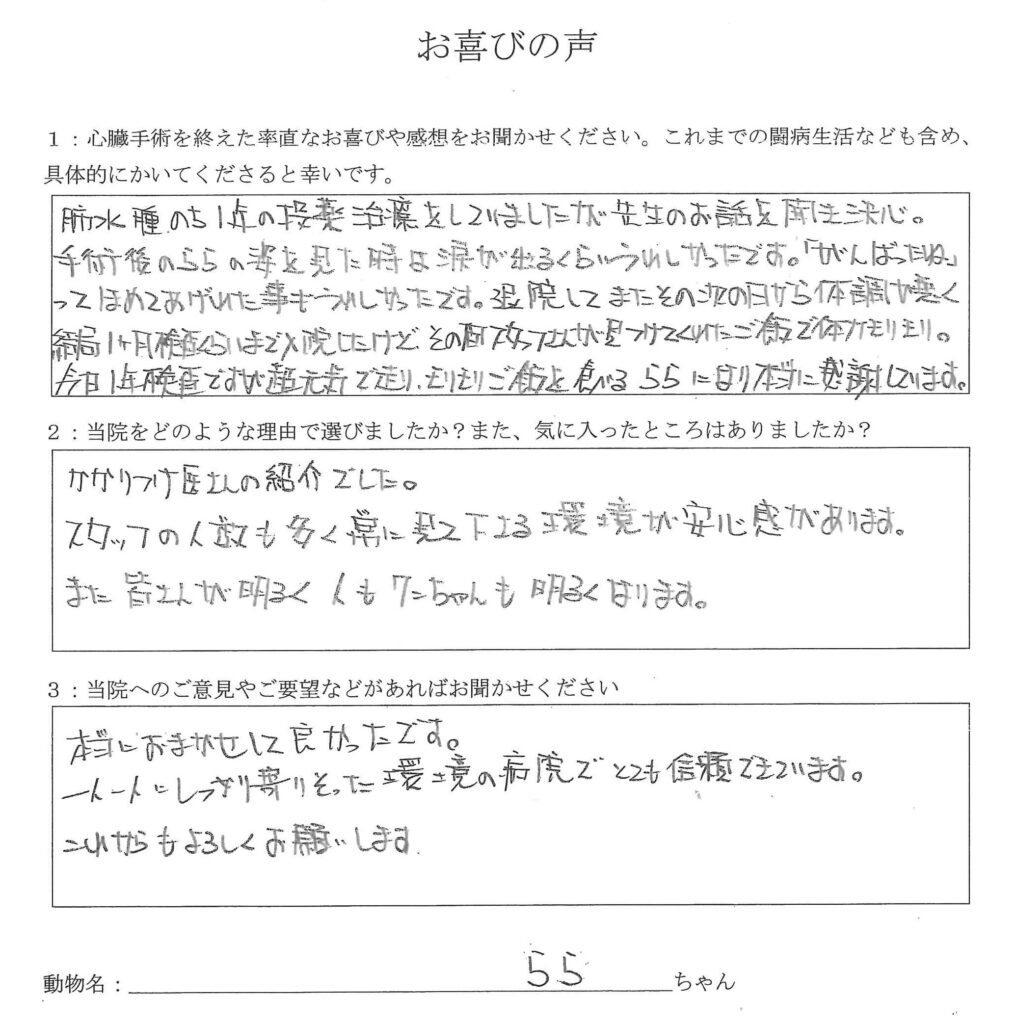 お喜びの声
1：心臓手術を終えた率直なお喜びや感想をお聞かせください。これまでの闘病生活なども含め、
具体的にかいてくださると幸いです。
肺水腫のち1年の投薬治療をしていましたが先生のお話を聞き決心。
手術後のららの姿を見た時は涙が出るくらいうれしかったです。「がんばったね」
ってほめてあげれた事もうれしかったです。退院してまたその次の日から体調が悪く
結局1ヶ月検査くらいまで入院したけどその間スタッフさんが見つけてくれたご飯で体力モリモリ。
今日1年検査ですが超元気で走り、モリモリご飯を食べるららになり本当に感謝しています。
2：当院をどのような理由で選びましたか？また、気に入ったところはありましたか？
かかりつけ医さんの紹介でした。
スタッフの人数も多く常に見て下さる環境が安心感があります。
また皆さんが明るく人もワンちゃんも明るくなります。
3：当院へのご意見やご要望などがあればお聞かせください
本当におまかせして良かったです。
一人一人にしっかり寄りそった環境の病院でとても信頼できています。
これからもよろしくお願いします
動物名： らら ちゃん